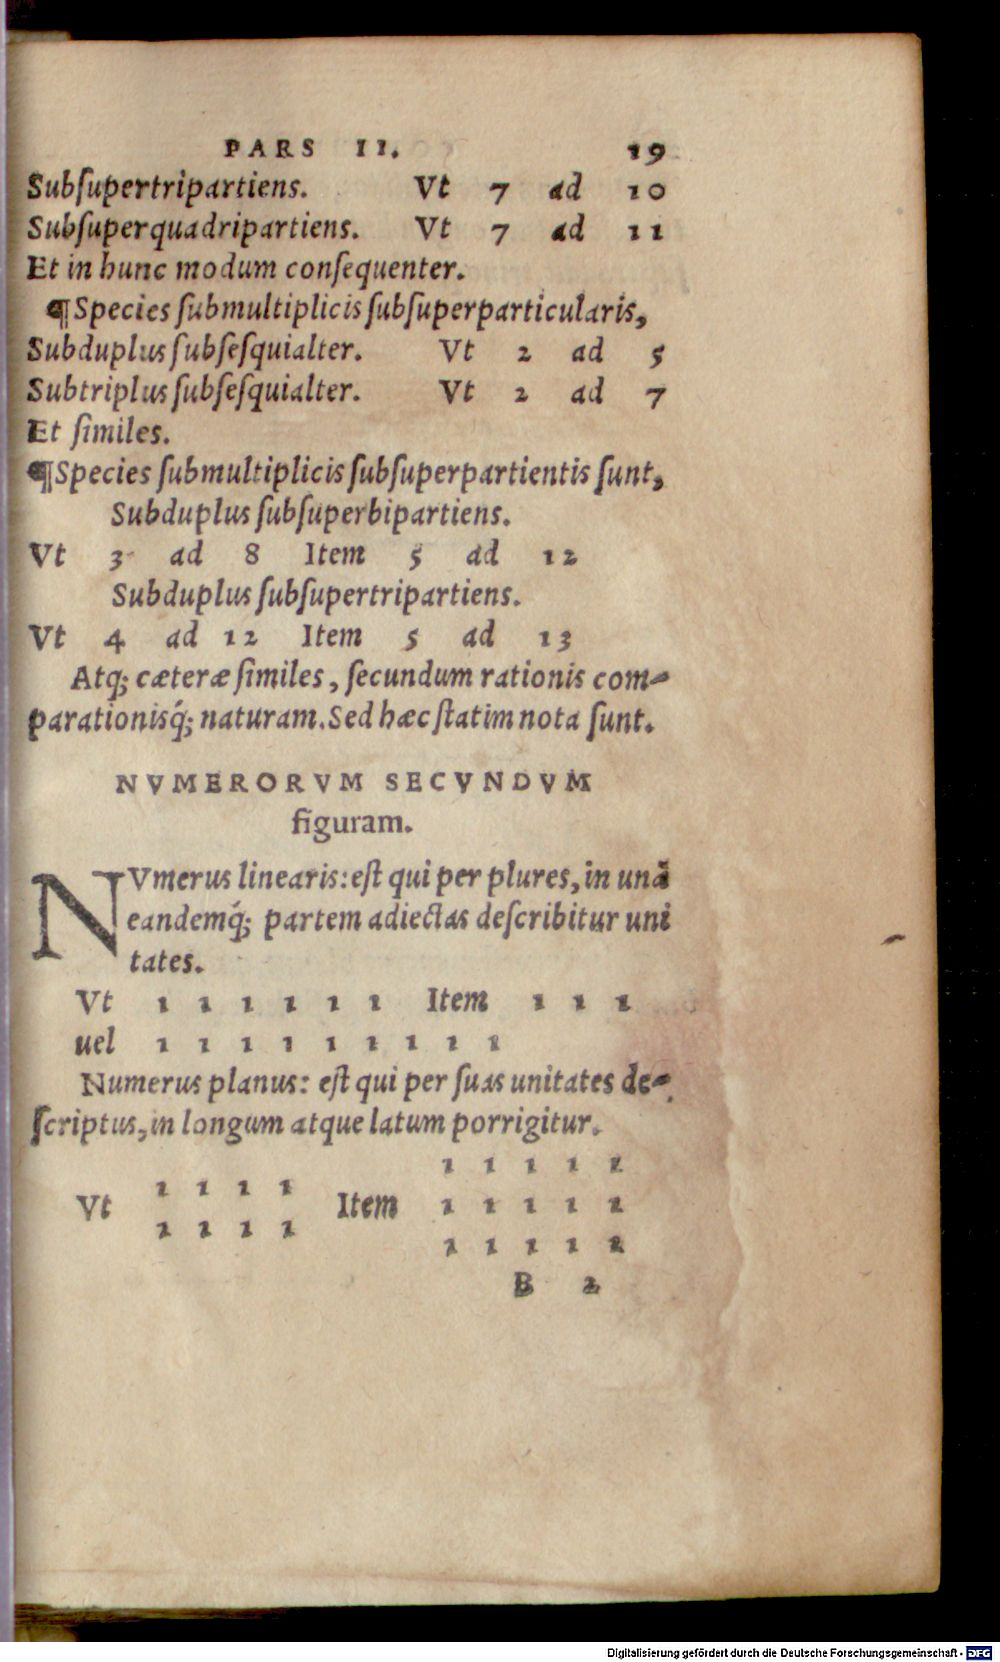 PARS II. 19
Subſupertripartiens. Vt 7 ad 10
Subſuperquadripartiens. Vt 7 ad 11
Et in hunc modum conſequenter.
¶Species ſubmultiplicis ſubſuperparticularis,
Subduplus ſubſeſquialter. Vt 2 ad 5
Subtriplus ſubſeſquialter. Vt 2 ad 7
Et ſimiles.
¶Species ſubmultiplicis ſubſuperpartientis ſunt,
Subduplus ſubſuperbipartiens.
Vt 3 ad 8 Item 5 ad 12
Subduplus ſubſupertripartiens.
Vt 4 ad 12 Item 5 ad 13
Atq; cæteræ ſimiles, ſecundum rationis com-
parationisq́; naturam. Sed hæc ſtatim nota ſunt.
NVMERORVM SECVNDVM
figuram.
NVmerus linearis: eſt qui per plures, in unã
eandemq́; partem adiectas deſcribitur uni
tates.
Vt 1 1 1 1 1 1 Item 1 1 1
uel 1 1 1 1 1 1 1 1 1
Numerus planus: eſt qui per ſuas unitates de-
ſcriptus, in longum atque latum porrigitur.
1 1 1 1 1
1 1 1 1
Vt Item 1 1 1 1 1
1 1 1 1
1 1 1 1 1
B 2
Digitalisierung gefördert durch die Deutsche Forschungsgemeinschaft - DFG